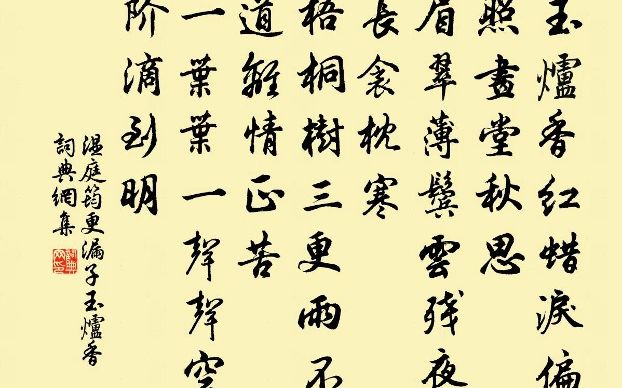 玉爐香红蜡淚偏
照畫堂秋思
眉翠薄鬓雲残夜
長衾枕寒
梧桐樹三更雨不
道離情正苦
一葉葉一聲聲空
阶滴到明
温庭筠更漏子玉爐香
詞典網集